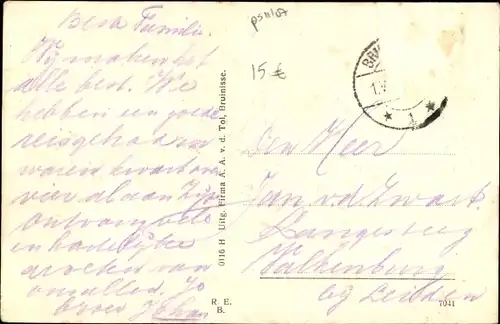 Beste Familie.
Wij maken het
alle best. We
hebben een goede
reis gehad en
waren kwart over
vier al aan Zijp
Ontvang
en hartelijke
groeten van
ons allen. Jo
Johan
psm107
15 €
0116 H Uitg. Firma A. A. v. d. Tol, Bruinisse.
R. E.
B.
BRU
1
Den Heer
Jan v.d. Zwart
Langeweg
Valkenburg
bij Leiden
7041